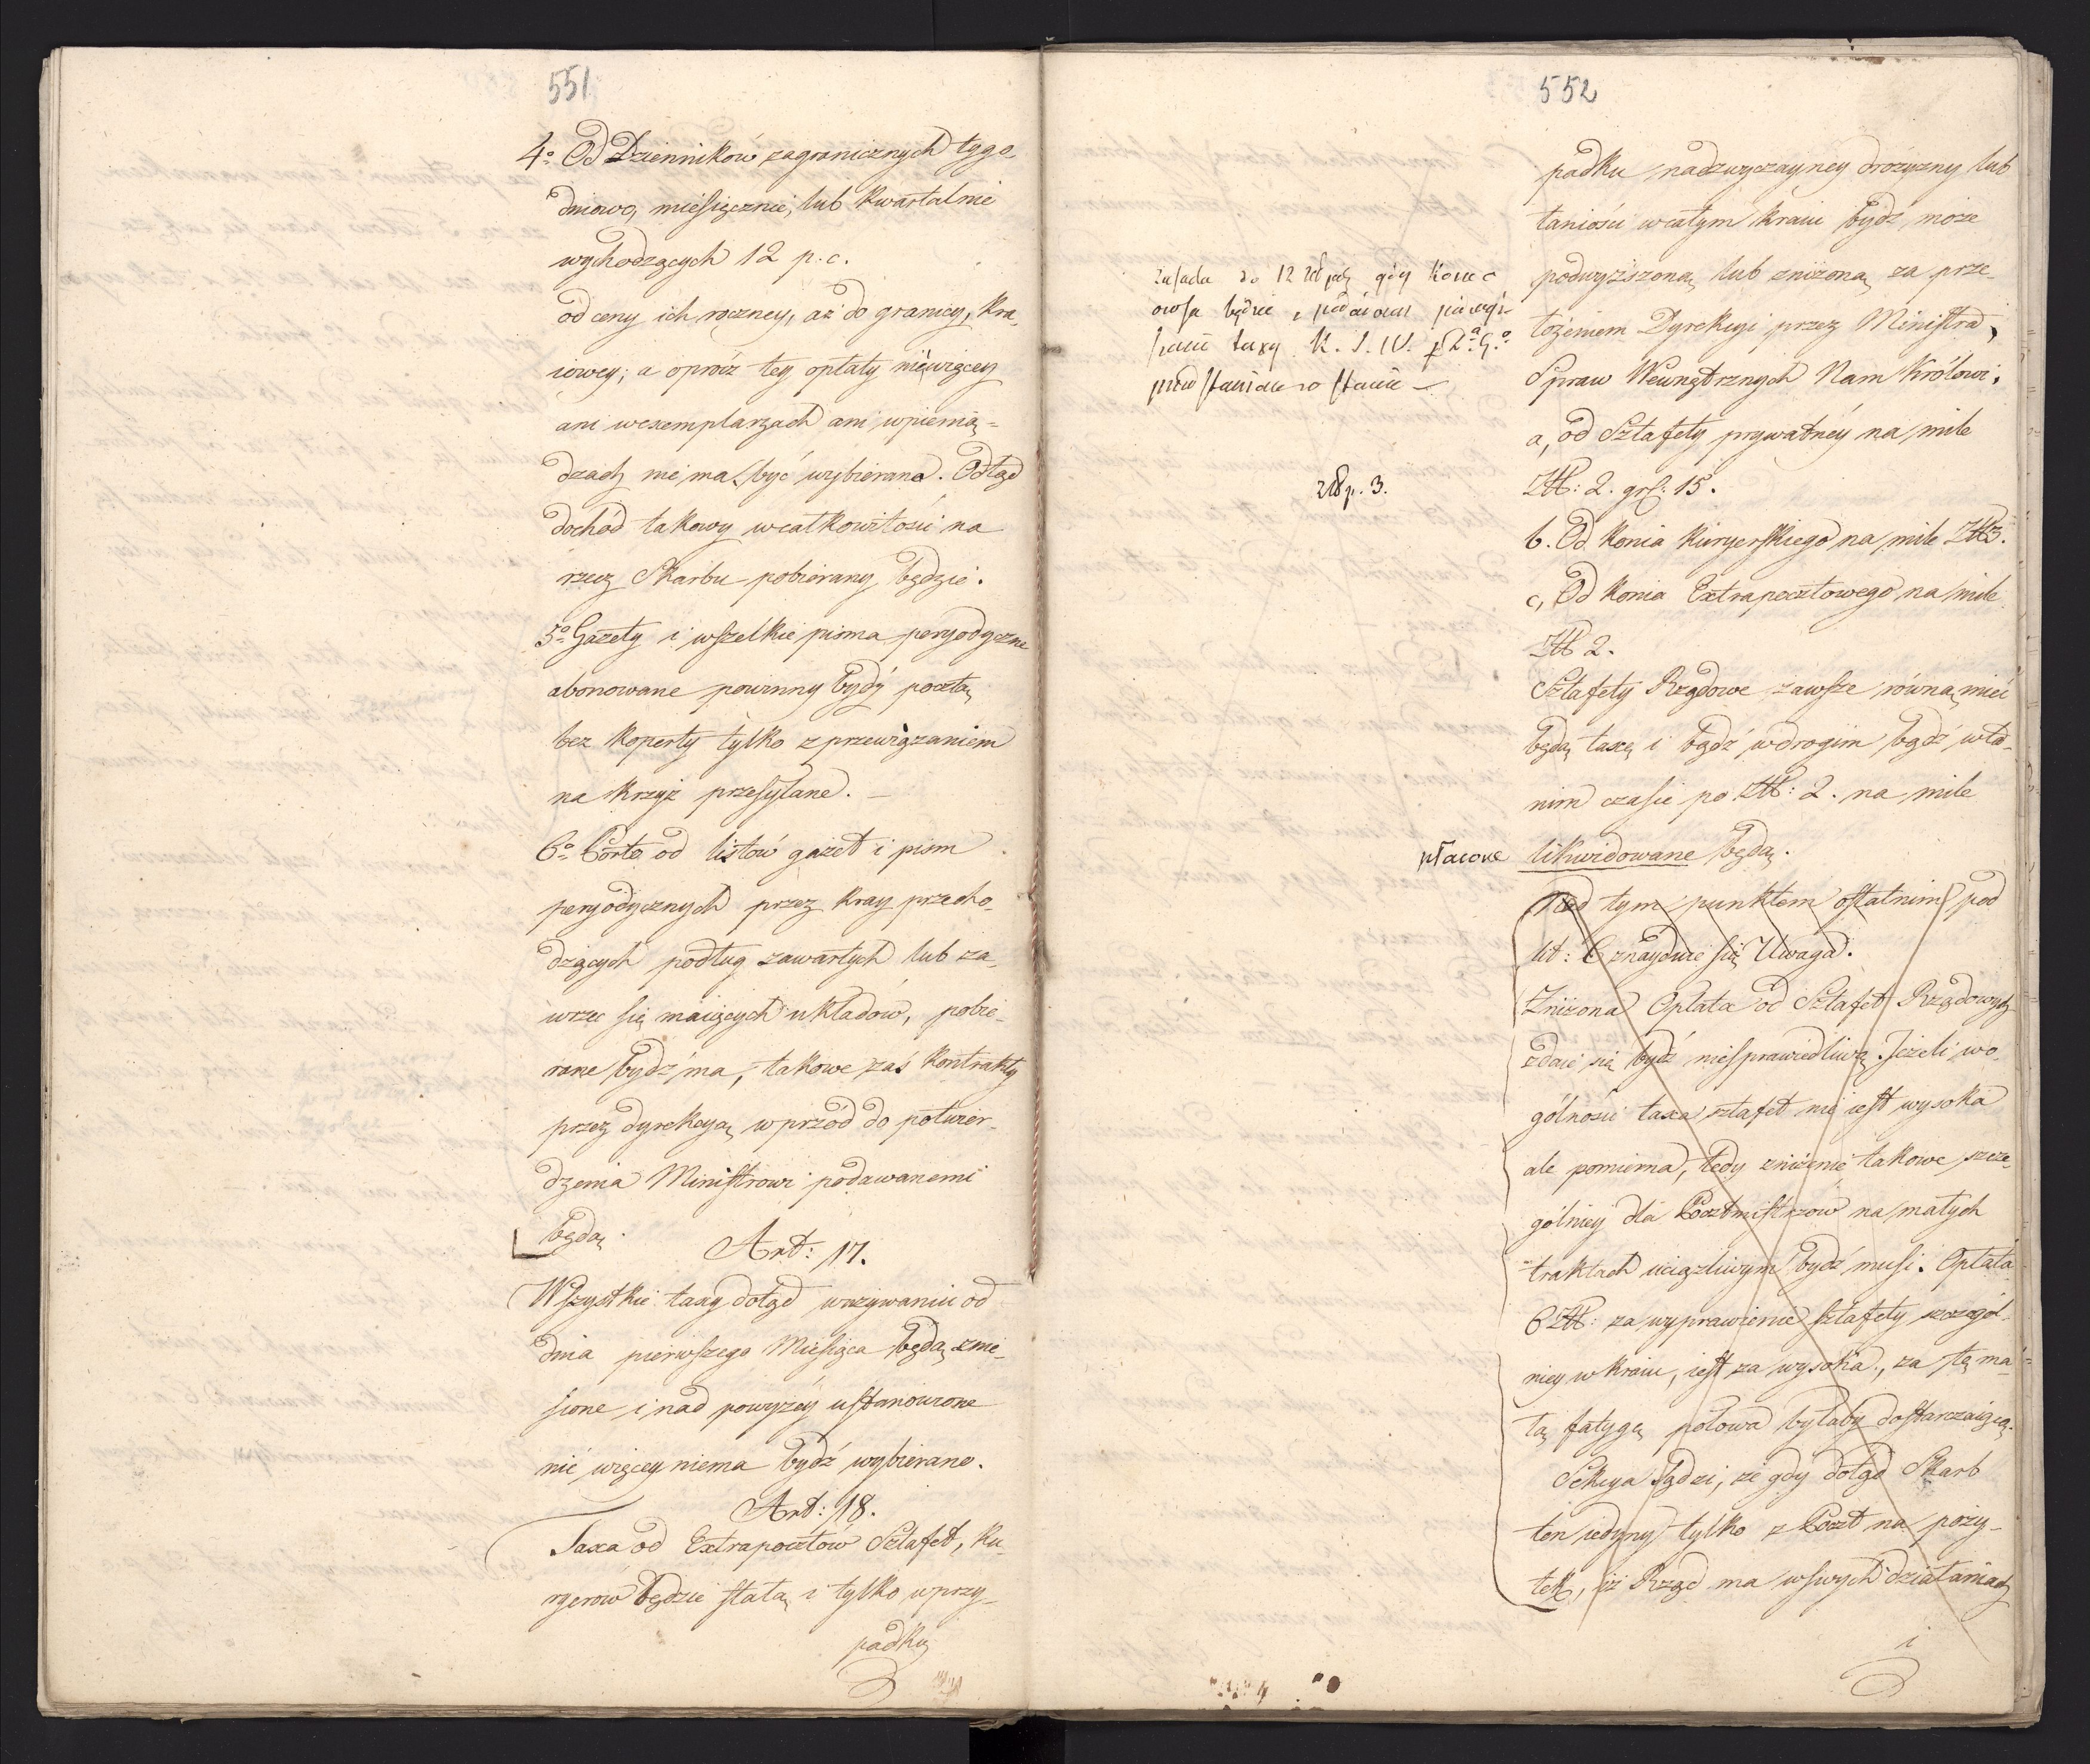 551
4º Od Dzienników zagranicznych tygo-
dniowo, miesięcznie, lub kwartalnie
wychodzących 12 p. c.
od ceny ich roczney, aż do granicy, kra-
iowey; a oprócz tey opłaty niewięcey
ani wexemplarzach ani wpienią=
dzach nie ma być wybierana. Odtąd
dochód takowy wcałkowitości na
rzecz Skarbu pobierany będzie.
5º Gazety i wszelkie pisma peryodyczne
abonowane powinny bydź pocztą
bez koperty tylko z przewiązaniem
na krzyż przesyłane. —
6º Porto od listów gazet i pism
peryodycznych przez kray przecho-
dzących podług zawartych lub za-
wrzec się maiących układów, pobie-
rane bydź ma, takowe zaś kontrakty
przez dyrekcyą wprzód do potwier-
dzenia Ministrowi podawanemi
będą.
Art: 17.
Wszystkie taxy dotąd wużywaniu od
dnia pierwszego Miesiąca będą znie-
sione i nad powyżéy ustanowione
nic więcey niema bydź wybierano.
Art: 18.
Taxa od Extrapocztów Sztafet, Ku-
ryerów będzie stałą i tylko wprzy-
padku
552
padku nadzwyczayney drożyzny lub
taniości wcałym kraiu bydź może
podwyższoną lub zniżoną za prze-
łożeniem Dyrekcyi przez Ministra
Spraw Wewnętrznych Nam Królowi.
a, od Sztafety prywatnéy na mile
Złł: 2. grs: 15.
b. Od konia Kuryerskiego na mile Złł 3.
c, Od konia Extrapocztowego na mile
Złł 2.
Sztafety Rządowe zawsze równą mieć
będą taxę i bądź wdrogim bądź wta-
nim czasie po Złł: 2. na mile
likwidowane będą.
Nad tym punktem ostatnim pod
lit: C znayduie się Uwaga.
Zniżona Opłata od Sztafet Rządowych
zdaie się bydź niesprawiedliwą. Jeżeli wo-
gólności taxa sztafet nie iest wysoka
ale pomierna, tedy zniżenie takowe szcze-
gólniey dla Pocztmistrzow na małych
traktach uciążliwym bydź musi. Opłata
6 Złł: za wyprawienie sztafety szczegól-
niey w kraiu, iest za wysoka, za tę ma-
łą fatygę połowa byłaby dostarczaiącą.
Sekcya sądzi, że gdy dotąd Skarb
ten iedyny tylko z Poczt na poży-
tek, iż Rząd ma wswych działaniach
i
do 12 gdy
będzie
taxy K. S. W.
złp. 3.
płacone